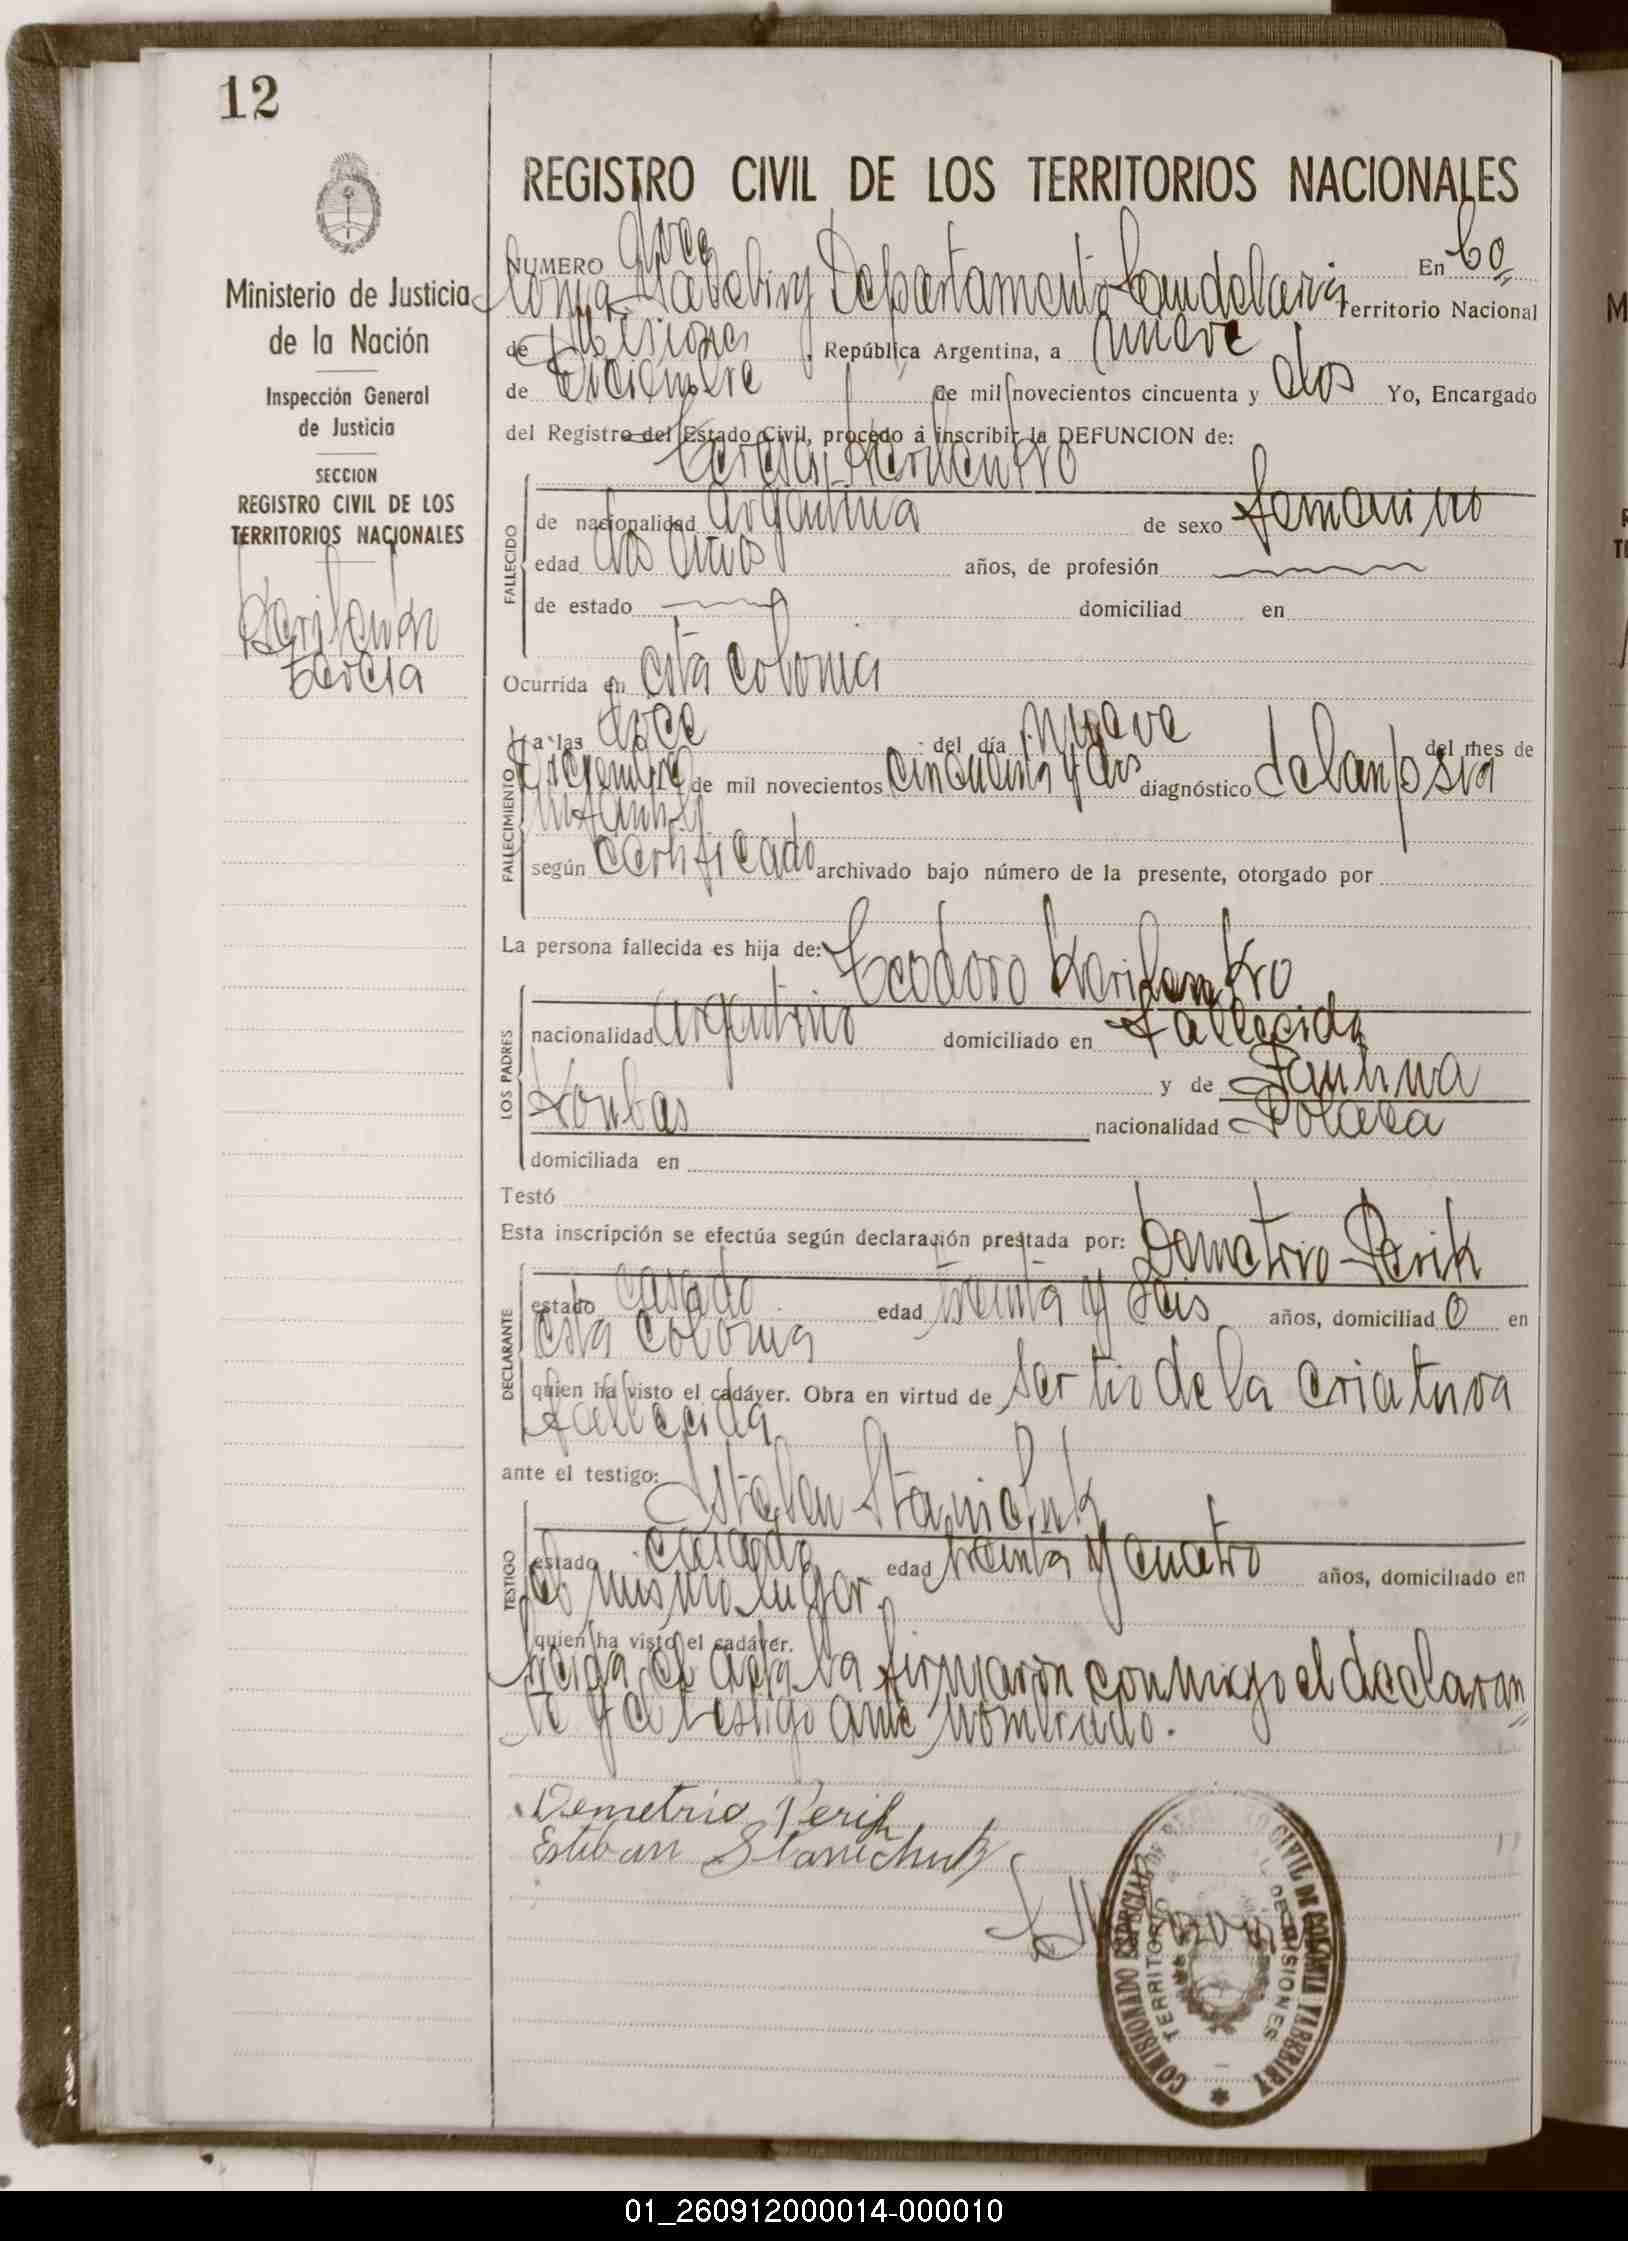 12
Ministerio de Justicia
de la Nación
Inspección General
de Justicia
SECCION
REGISTRO CIVIL DE LOS
TERRITORIOS NACIONALES
Teresa
REGISTRO CIVIL DE LOS TERRITORIOS NACIONALES
NUMERO Doce En Co
lonia Yabebiry Departamento Candelaria Territorio Nacional
de Misiones, República Argentina, a nueve
de Diciembre de mil novecientos cincuenta y dos Yo, Encargado
del Registro del Estado Civil, procedo á inscribir la DEFUNCION de:
Teresa
FALLECIDO
de nacionalidad argentina de sexo femenino
edad dos años años, de profesión
de estado domiciliad en
Ocurrida en esta colonia
FALLECIMIENTO
a las doce del día nueve del mes de
Diciembre de mil novecientos cincuenta y dos diagnóstico
según certificado archivado bajo número de la presente, otorgado por
La persona fallecida es hija de: Teodoro
LOS PADRES
nacionalidad argentino domiciliado en fallecida
y de
nacionalidad Polaca
domiciliada en
Testó
Esta inscripción se efectúa según declaración prestada por: Demetrio Perik
DECLARANTE
estado casado edad treinta y seis años, domiciliad o en
esta colonia
quien ha visto el cadáver. Obra en virtud de ser tio de la criatura
fallecida
ante el testigo: Esteban
TESTIGO
estado casado edad treinta y cuatro años, domiciliado en
el mismo lugar.
quien ha visto el cadáver.
Leida el acta la firmaron conmigo el declaran
te y el testigo ante nombrado.
Demetrio Perik
Esteban Stanichuk
COMISIONADO ESPECIAL DE REGISTRO CIVIL DE COLONIA YABEBIRY
TERRITORIO DE MISIONES
01_260912000014-000010